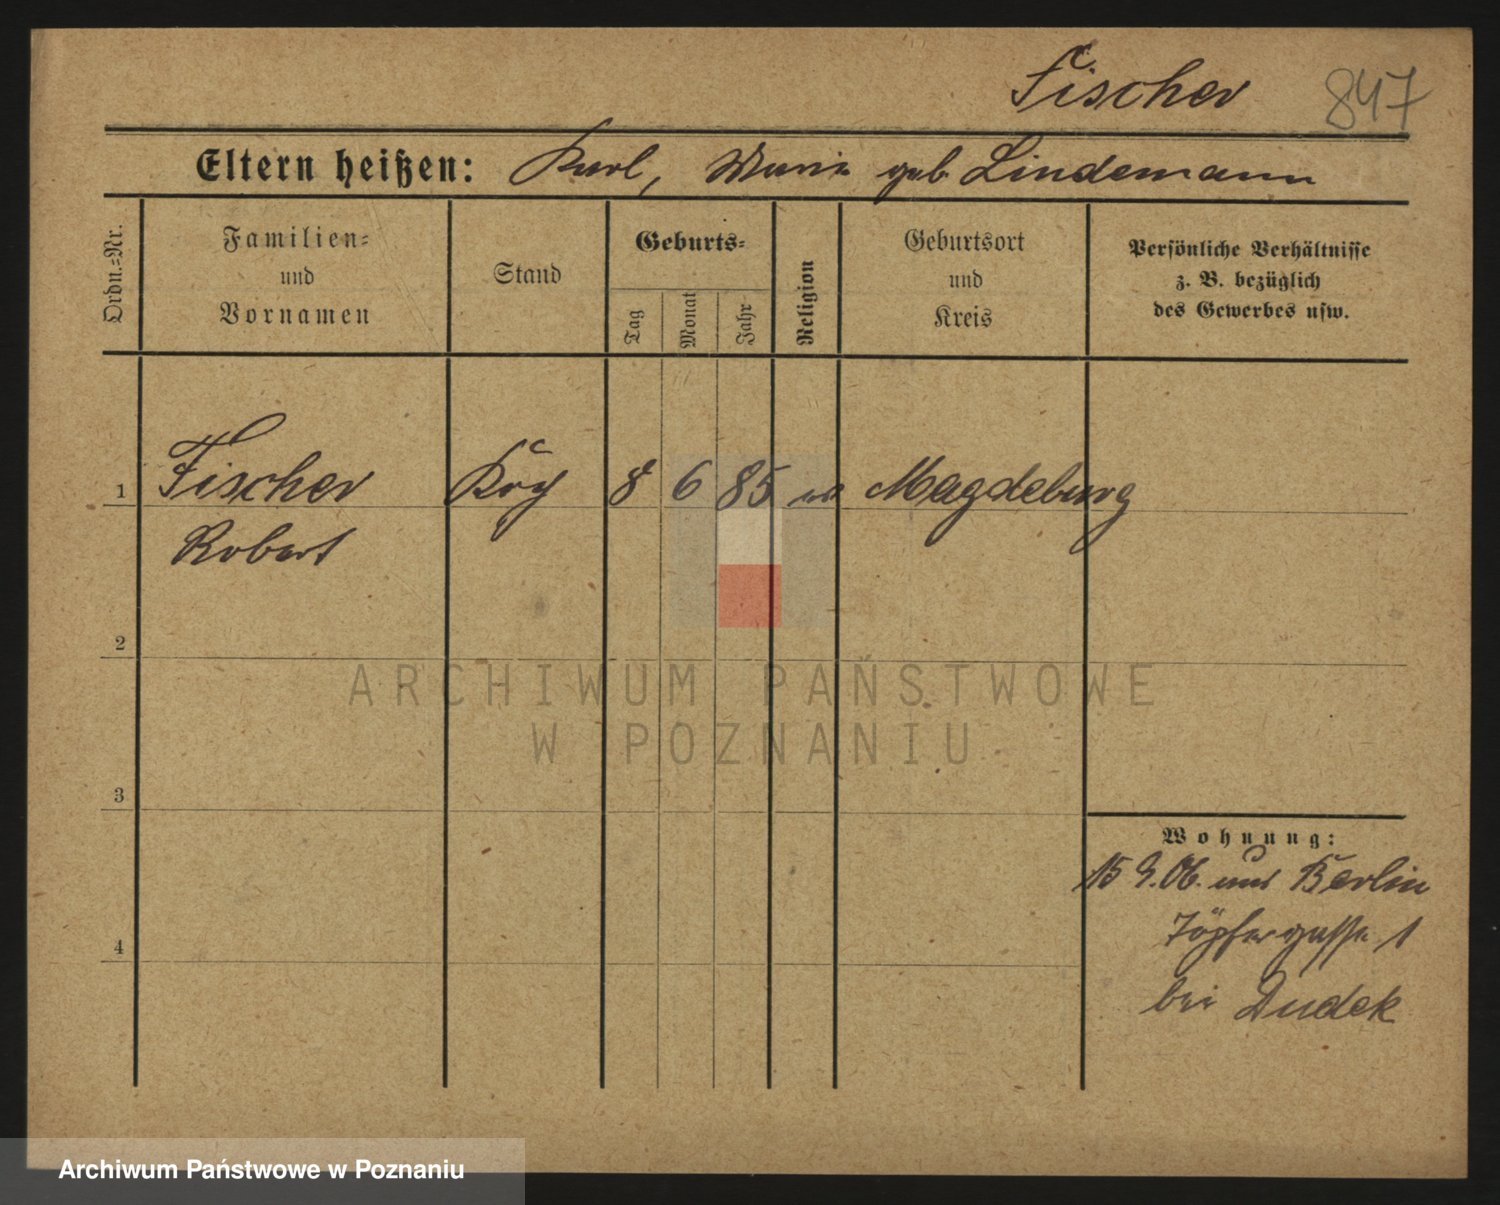 Fischer 847
Eltern heißen: Karl, Maria geb. Lindemann
Ordn.-Nr.
Familien-
und
Vornamen
Stand
Geburts-
Tag
Monat
Jahr
Religion
Geburtsort
und
Kreis
Persönliche Verhältnisse
z. B. bezüglich
des Gewerbes usw.
1 Fischer 8 6 85 ev Magdeburg
Robert
2
3
4
Wohnung:
15 9.06. aus Berlin
Töpfergasse 1
bei Dudek
ARCHIWUM PAŃSTWOWE
W POZNANIU
Archiwum Państwowe w Poznaniu